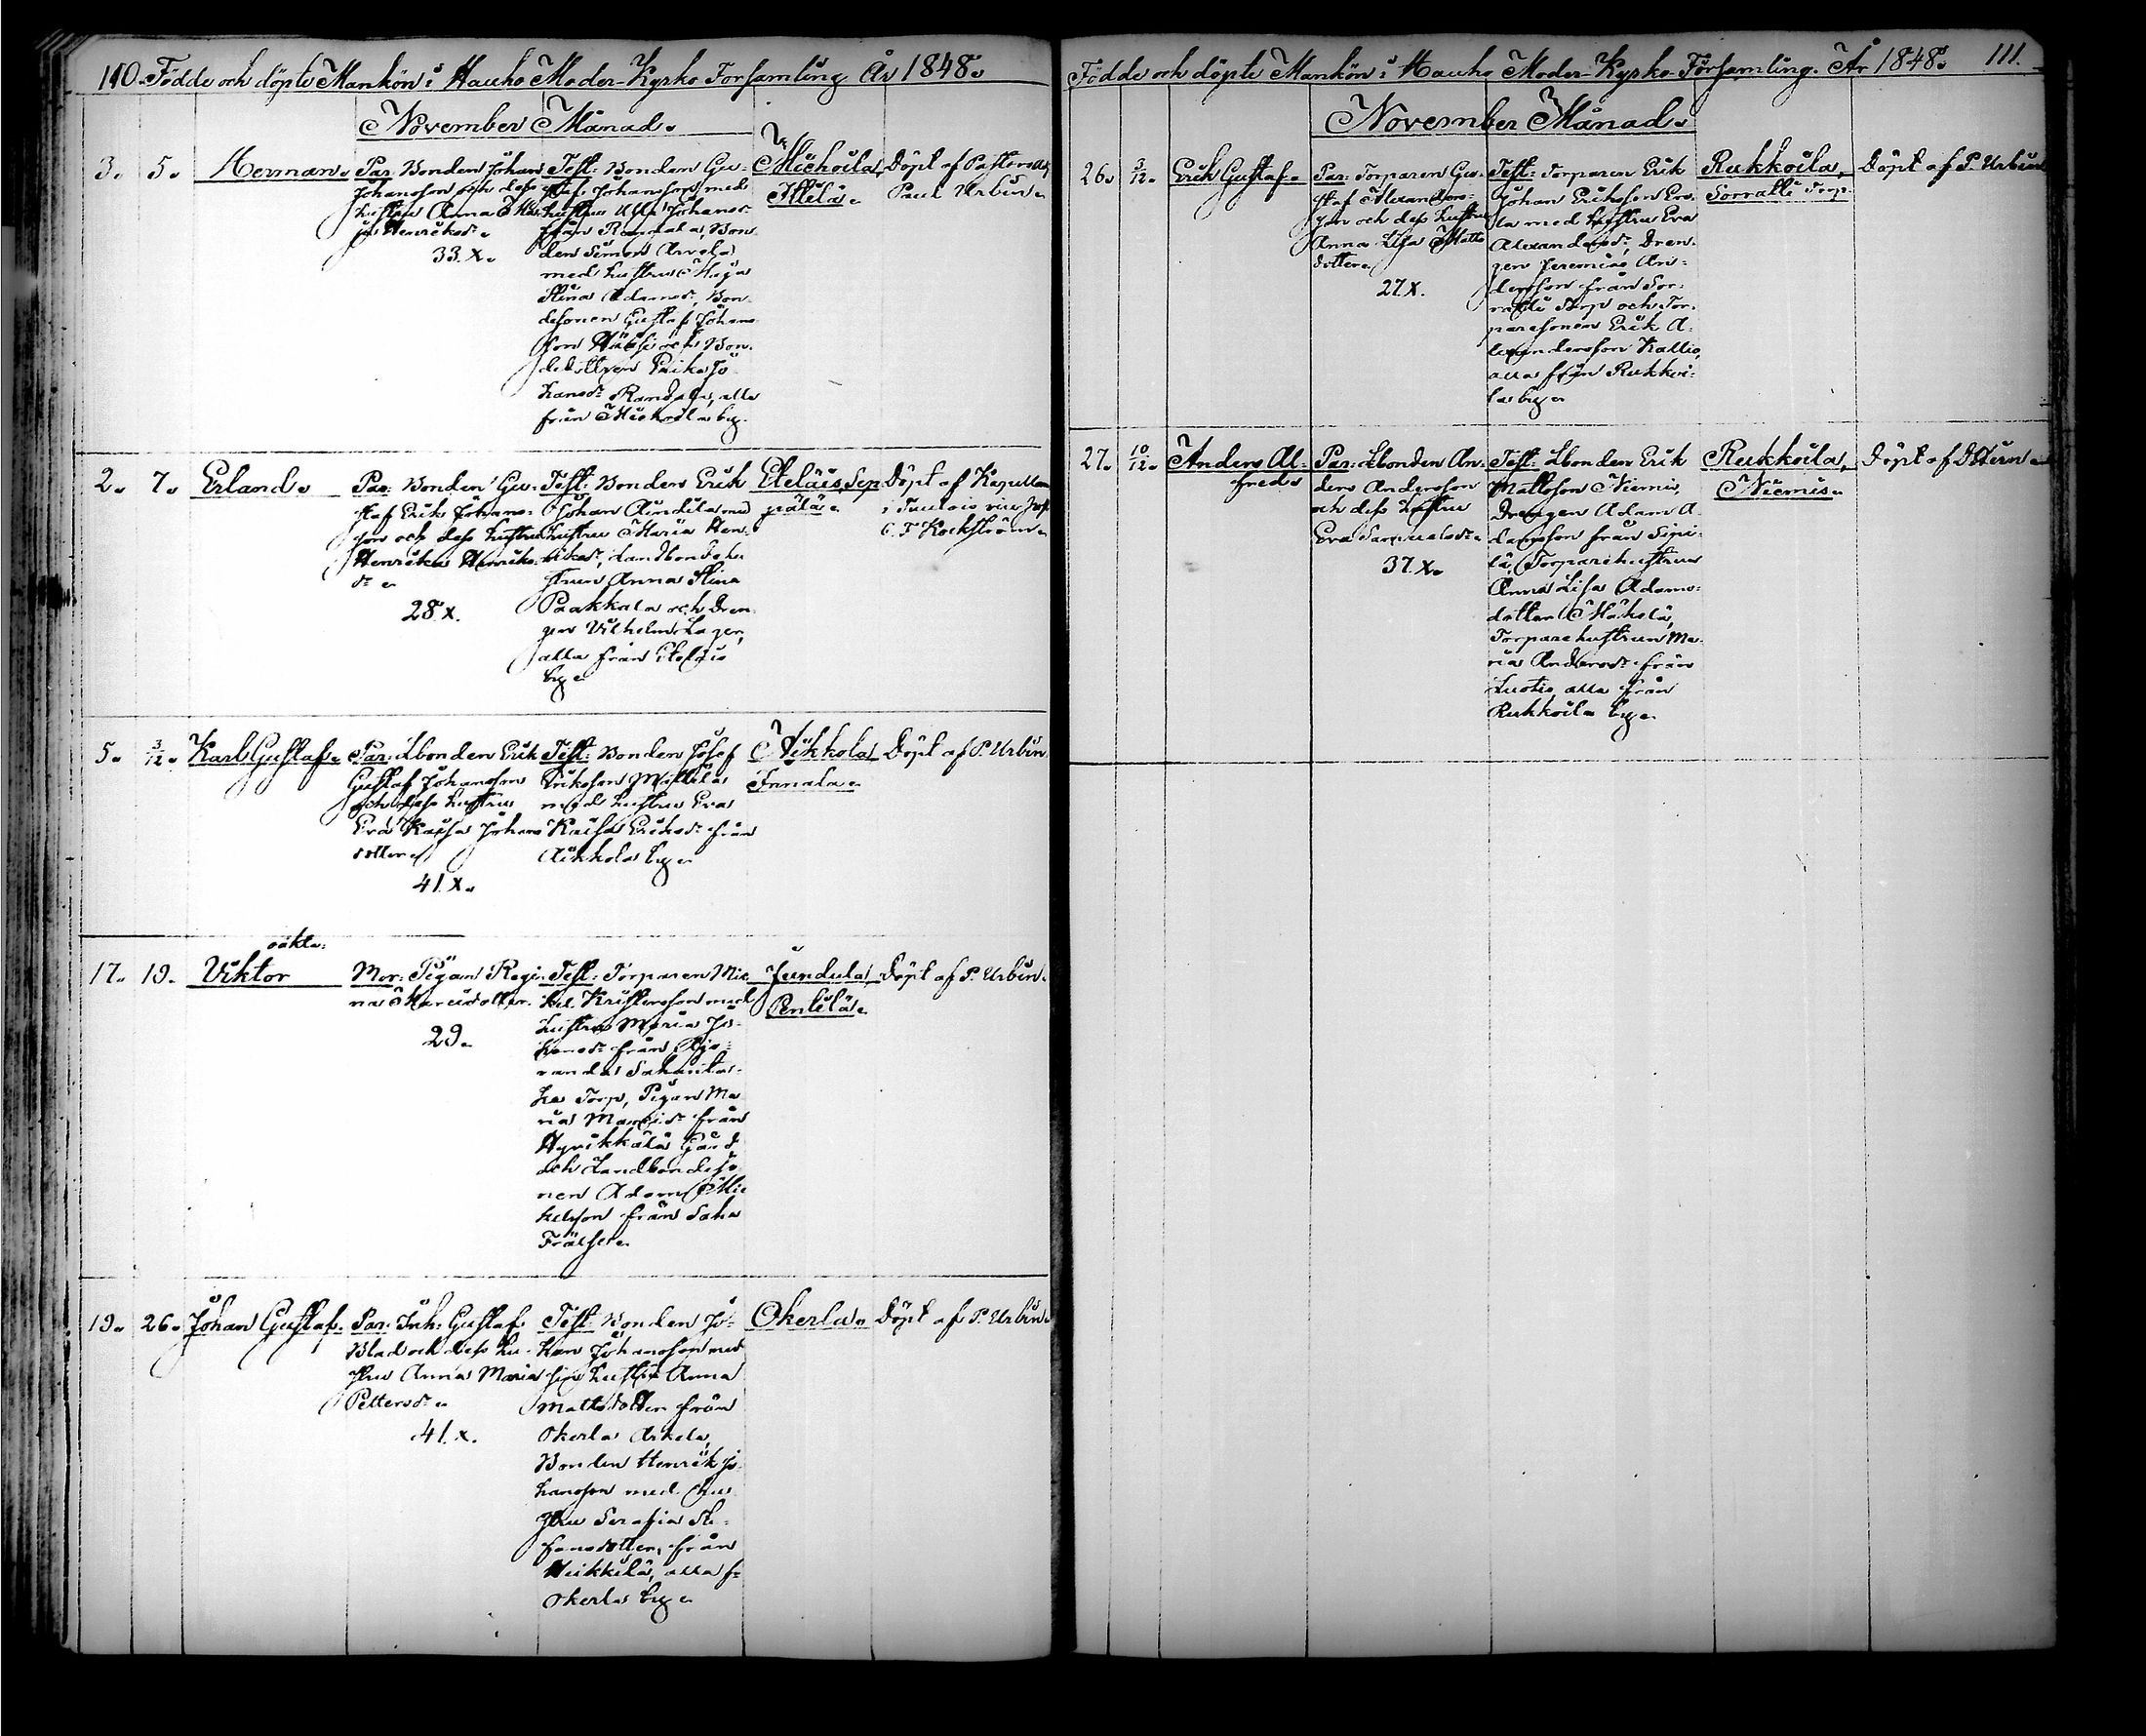 110. Födde och döpte Mankön i Hauho Moder-Kyrko Församling År 1848.
November Månad.
3. 5. Herman.
Par: Bonden Johan
Johansson och dess
hustru Anna Ma-
ja Henriksd:r
33. X.
Test: Bonden Gu-
staf Johansson med
hustru Ulla Johansd:r
från Randala, Bon-
den Simon Anvela
med hustru Maja
Stina Adamsd:r, Bon-
desonen Gustaf Johans-
son och Bon-
dedottren Erika Jo-
hansd:r Randala, alla
från Miehoila by.
Miehoila,
Illilä.
Döpt af
Paul Urbin.
2. 7. Erland.
Par: Bonden Gu-
staf Erik Johans-
son och dess hustru
Henrika Henriks-
d:r
28. X.
Test: Bonden Erik
Johan Äindilä med
hustru Maria Hen-
riksd:r, Landbondehu-
strun Anna Stina
Paakkala och Dren-
gen Vilhelm Lager,
alla från Eteläis
by.
Eteläis, Sep-
pälä.
Döpt af Kapellan
i Tuulois vice
C. F. Kockström.
5. 3/12. Karl Gustaf.
Par: Lbonden Erik
Gustaf Johansson
och dess hustru
Eva Kaisa Johans-
dotter
41. X.
Test: Bonden Josef
Eriksson Mattila
med hustru Eva
Kaisa Eriksd:r från
Alkkola by.
Alkkola,
Innala.
Döpt af P. Urbin.
oäkta:
17. 19. Viktor
Mor: Pigan Regi-
na Mariædotter.
29.
Test: Torparen Mic-
kel Kristersson med
hustru Maria Jo-
hansd:r från
Torp, Pigan Ma-
ria från
Hyrikkälä Gård
och Landbondeso-
nen Adam Mic-
kelsson från Saha
Frälse.
Jundula,
Pentilä.
Döpt af P. Urbin.
19. 26. Johan Gustaf.
Par: Inh: Gustaf
Blad och dess hu-
stru Anna Maria
Pettersd:r
41. X.
Test: Bonden Jo-
han Johansson med
sin hustru Anna
Mattsdotter från
Okerla Arkela,
Bonden Henrik Jo-
hansson med hu-
stru Serafia Ste-
fansdotter, från
Heikkilä, alla f:r
Okerla by.
Okerla.
Döpt af P. Urbin.
Födde och döpte Mankön i Hauho Moder-Kyrko-Församling. År 1848. 111.
November Månad.
26. 3/12. Erik Gustaf.
Par: Torparen Gu-
staf Alexanders-
son och dess hustru
Anna Lisa Matts-
dotter
27. X.
Test: Torparen Erik
Johan Eriksson Ero-
la med hustru Eva
Alexandersd:r, Dren-
gen Jeremias An-
dersson från Sor-
ralli Torp och Tor-
paresonen Erik A-
lexandersson Kallio,
alla från Rukkoi-
la by.
Rukkoila,
Sorralli Torp.
Döpt af P. Urbin
27. 10/12. Anders Al-
fred.
Par: Lbonden An-
ders Andersson
och dess hustru
Eva Samuelsd:r
37. X.
Test: Lbonden Erik
Mattsson Niemis,
Drengen Adam A-
damsson från Sipi-
lä, Torparehustrun
Anna Lisa Adams-
dotter Mäkelä,
Torparehustrun Ma-
ria Andersd:r från
Luotio, alla från
Rukkoila by.
Rukkoila,
Niemis.
Döpt af